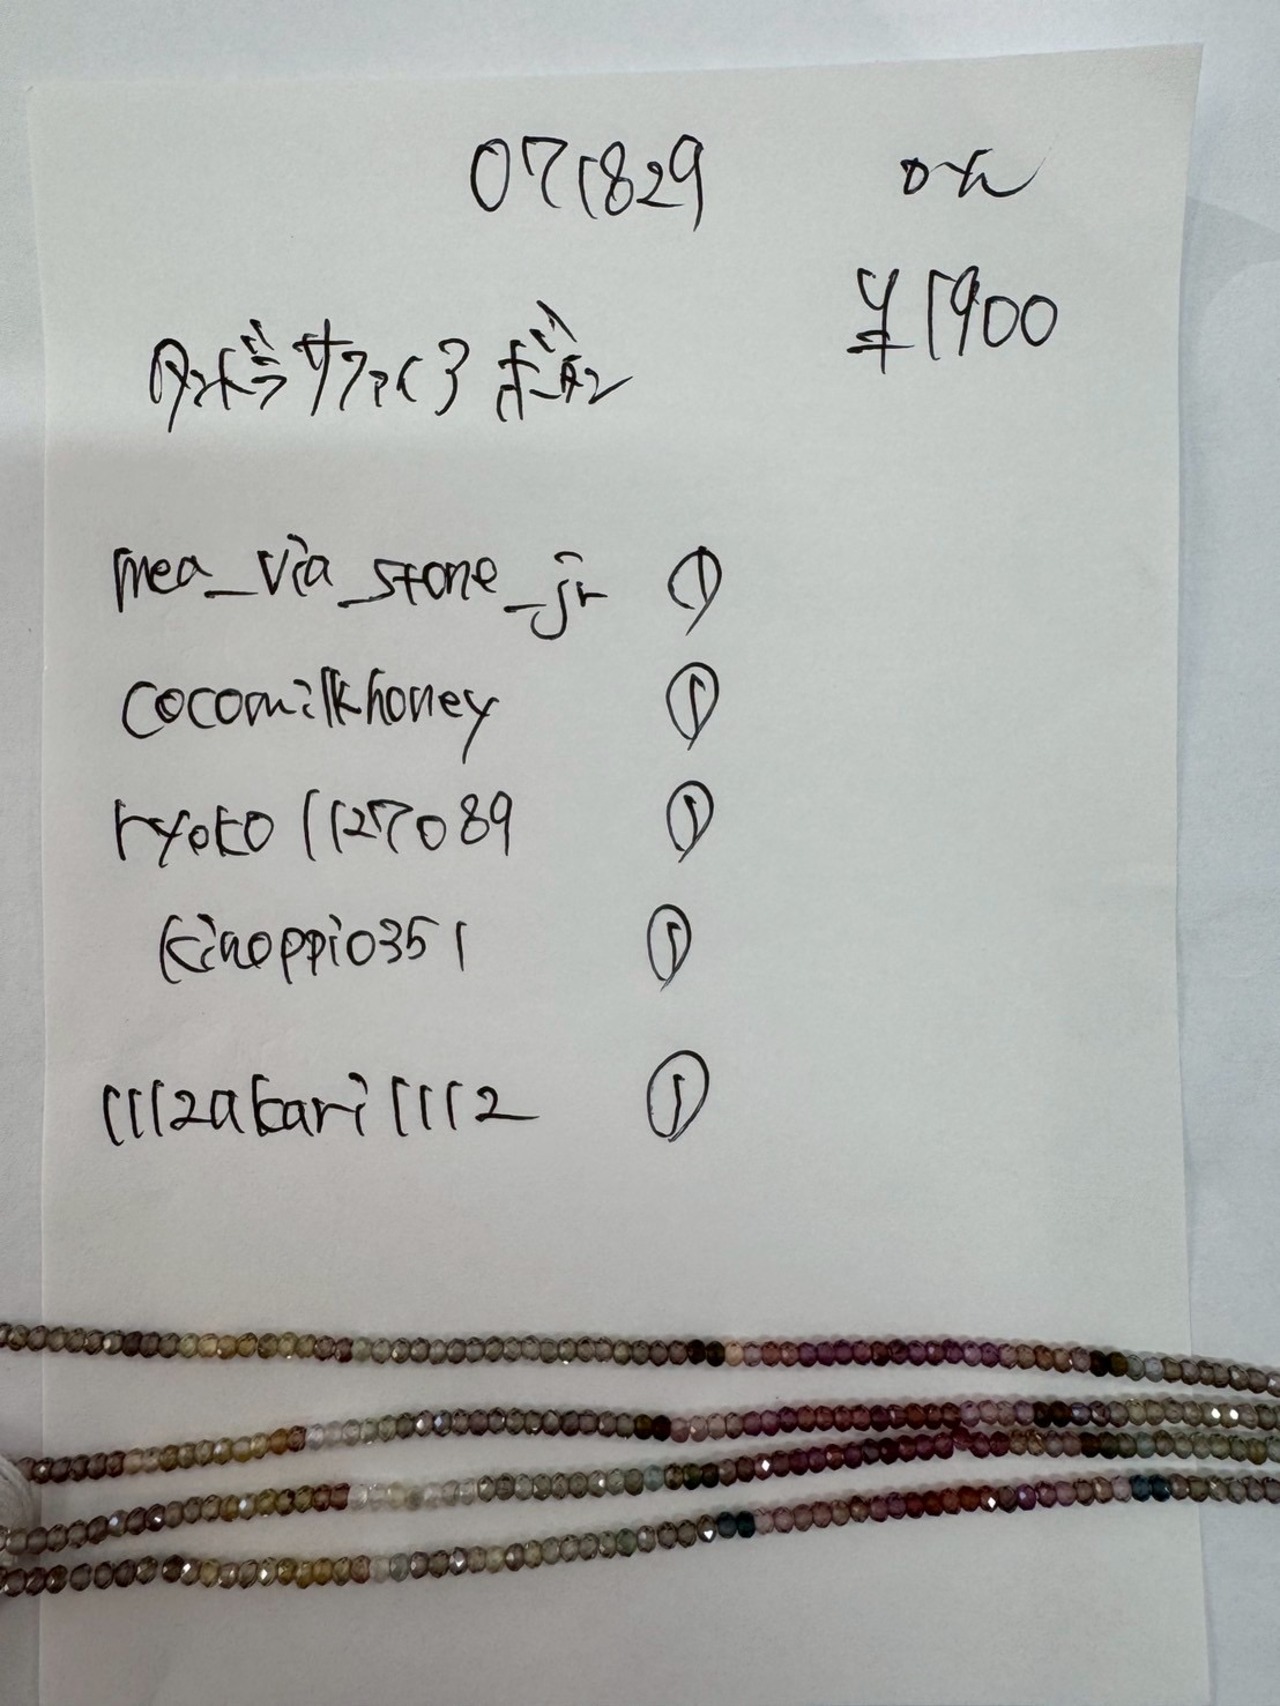 071829
¥1900
サファイア ボタン
mea_via_stone_jr ①
cocomilkhoney ①
ryoko1127089 ①
kinoppio351 ①
1112akari1112 ①